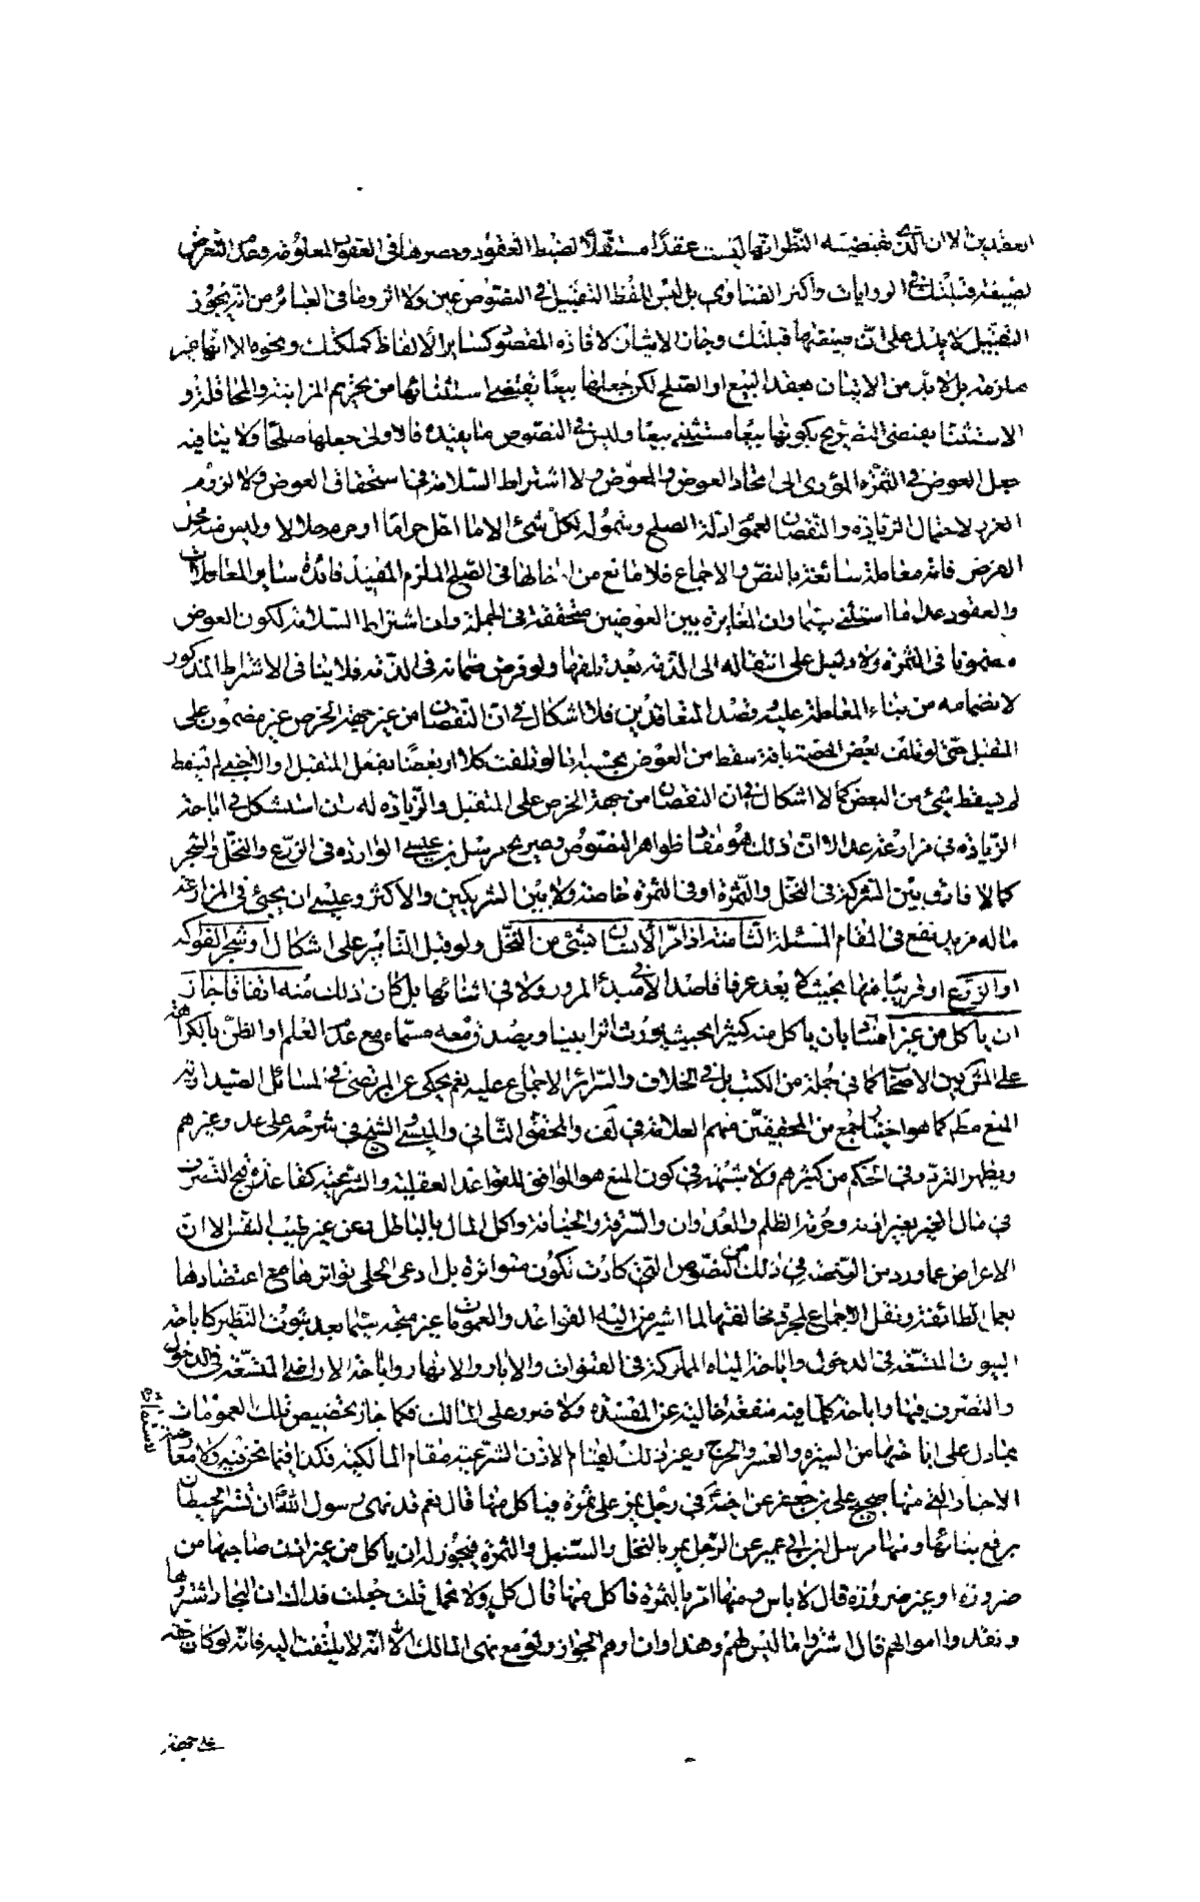 العقدين الا ان الذى يقتضيه النظر انها ليست عقدًا مستقلًا لضبط العقود وحصرها فى العقود المعلومة وعدم التعرض
لصيغة قبلتك فى الروايات واكثر الفتاوى بل ليس للفظ التقبيل فى النصوص عين ولا اثر وما فى العبائر من انه يجوز
التقبيل لا يدل على ان صيغتها قبلتك وجاز الاتيان لافادة المقصود كساير الالفاظ كملكتك ونحوه الا انها غير
ملزمة بل لا بد من الاتيان بعقد البيع او الصلح لكن جعلها بيعًا يقتضى استثنائها من تحريم المزابنة والمحاقلة و
الاستثناء يقتضى التصريح بكونها بيعًا مستثنى بيعًا وليس فى النصوص ما يفيده فالاولى جعلها صلحًا ولا ينافيه
جعل العوض فى الثمرة المؤدى الى اتحاد العوض والمعوض ولا اشتراط السلامة فى استحقاق العوض ولا لزوم
الغرر لاحتمال الزيادة والنقصان لعموم ادلة الصلح وشموله لكل شئ الا ما احل حرامًا او حرم حلالا وليس منه محل
الفرض فانه معاملة سائغة بالنص والاجماع فلا مانع من ادخالها فى الصلح الملزم المفيد فائدة ساير المعاملات
والعقود عدا ما استثنى سيما وان المغايرة بين العوضين متحققة فى الجملة وان اشتراط السلامة لكون العوض
مضمونا فى الثمرة ولا دليل على انتقاله الى الذمة بعد تلفها ولو فرض ضمانه فى الذمة فلا ينافى الاشتراط المذكور
لانضمامه من بناء المعاملة عليه وقصد المتعاقدين فلا اشكال فى ان النقصان من غير جهة الخرص غير مضمون على
المتقبل حتى لو تلف بعض الحصة بافة سقط من العوض بحسابه اما لو تلفت كلا او بعضًا بفعل المتقبل او الاجنبى لم تسقط
لم يسقط شئ من العوض كما لا اشكال فى ان النقصان من جهة الخرص على المتقبل والزيادة له وان استشكل فى اباحة
الزيادة فى مزارعة عد الا ان ذلك هو مفاد ظواهر النصوص وصريح مرسل بن عيسى الواردة فى الزرع والنخل والشجر
كما لا فارق بين الشركة فى النخل والثمرة او فى الثمرة خاصة ولا بين الشريكين والاكثر وعسى ان يجئ فى المزارعة
ماله مزيد نفع فى المقام المسئلة الثامنة اذا مر الانسان بشئ من النخل ولو قبل التابير على اشكال او شجر الفواكه
او الزرع او قريبًا منها بحيث لا يعد عرفا قاصدا لا فى مبدء المرور ولا فى اثنائها بل كان ذلك منه اتفاقا جاز
ان ياكل من غير افساد بان ياكل منه كثيرا بحيث يورث اثرا بينا ويصدق معه مسماه مع عدم العلم والظن بالكراهة
على المشهور بين الاصحاب كما فى جملة من الكتب بل فى الخلاف والسرائر الاجماع عليه نعم يحكى عن المرتضى فى المسائل الصيداوية
المنع مطلقا كما هو اختيار جمع من المحققين منهم العلامة فى لف والمحقق الثانى والميسى والشيخ فى شرحه على عد وغيرهم
ويظهر التردد فى الحكم من كثير منهم ولا شبهة فى كون المنع هو الموافق للقواعد العقلية والشرعية كقاعدة قبح التصرف
فى مال الغير بغير اذنه وحرمة الظلم والعدوان والسرقة والخيانة واكل المال بالباطل وعن غير طيب النفس الا ان
الاعراض عما ورد من الرخصة فى ذلك من النصوص التى كادت تكون متواترة بل ادعى الحلى تواترها مع اعتضادها
بعمل الطائفة ونقل الاجماع لمجرد مخالفتها لما اشير اليه من القواعد والعمومات غير متجه سيما بعد ثبوت النظير كاباحة
البيوت المتسعة فى الدخول واباحة المياه المملوكة فى القنوات والابار والانهار واباحة الاراضى المتسعة فى الدخول
والتصرف فيها واباحة كلما فيه منفعة خالية عن المفسدة ولا ضرر على المالك فكما جاز تخصيص تلك العمومات
بما دل على اباحتها من السيرة والعسر والحرج وغير ذلك لقيام الاذن الشرعية مقام المالكية فكذا فيما نحن فيه ولا معارضة
الاخبار التى منها صحيح على بن جعفر عن اخيه فى رجل يمر على ثمرة فياكل منها قال نعم قد نهى رسول الله ان تستر الحيطان
برفع بنائها ومنها مرسل ابن ابى عمير عن الرجل يمر بالنخل والسنبل والثمرة فيجوز له ان ياكل من غير اذن صاحبها من
ضرورة او غير ضرورة قال لا باس ومنها امر بالثمرة فاكل منها قال كل ولا تحمل قلت جعلت فداك ان التجار اشتروها
ونقدوا اموالهم قال اشتروا ما ليس لهم وهذا وان اوهم الجواز ولو مع نهى المالك الا انه لا يلتفت اليه فانه لو كان
على حقيقته